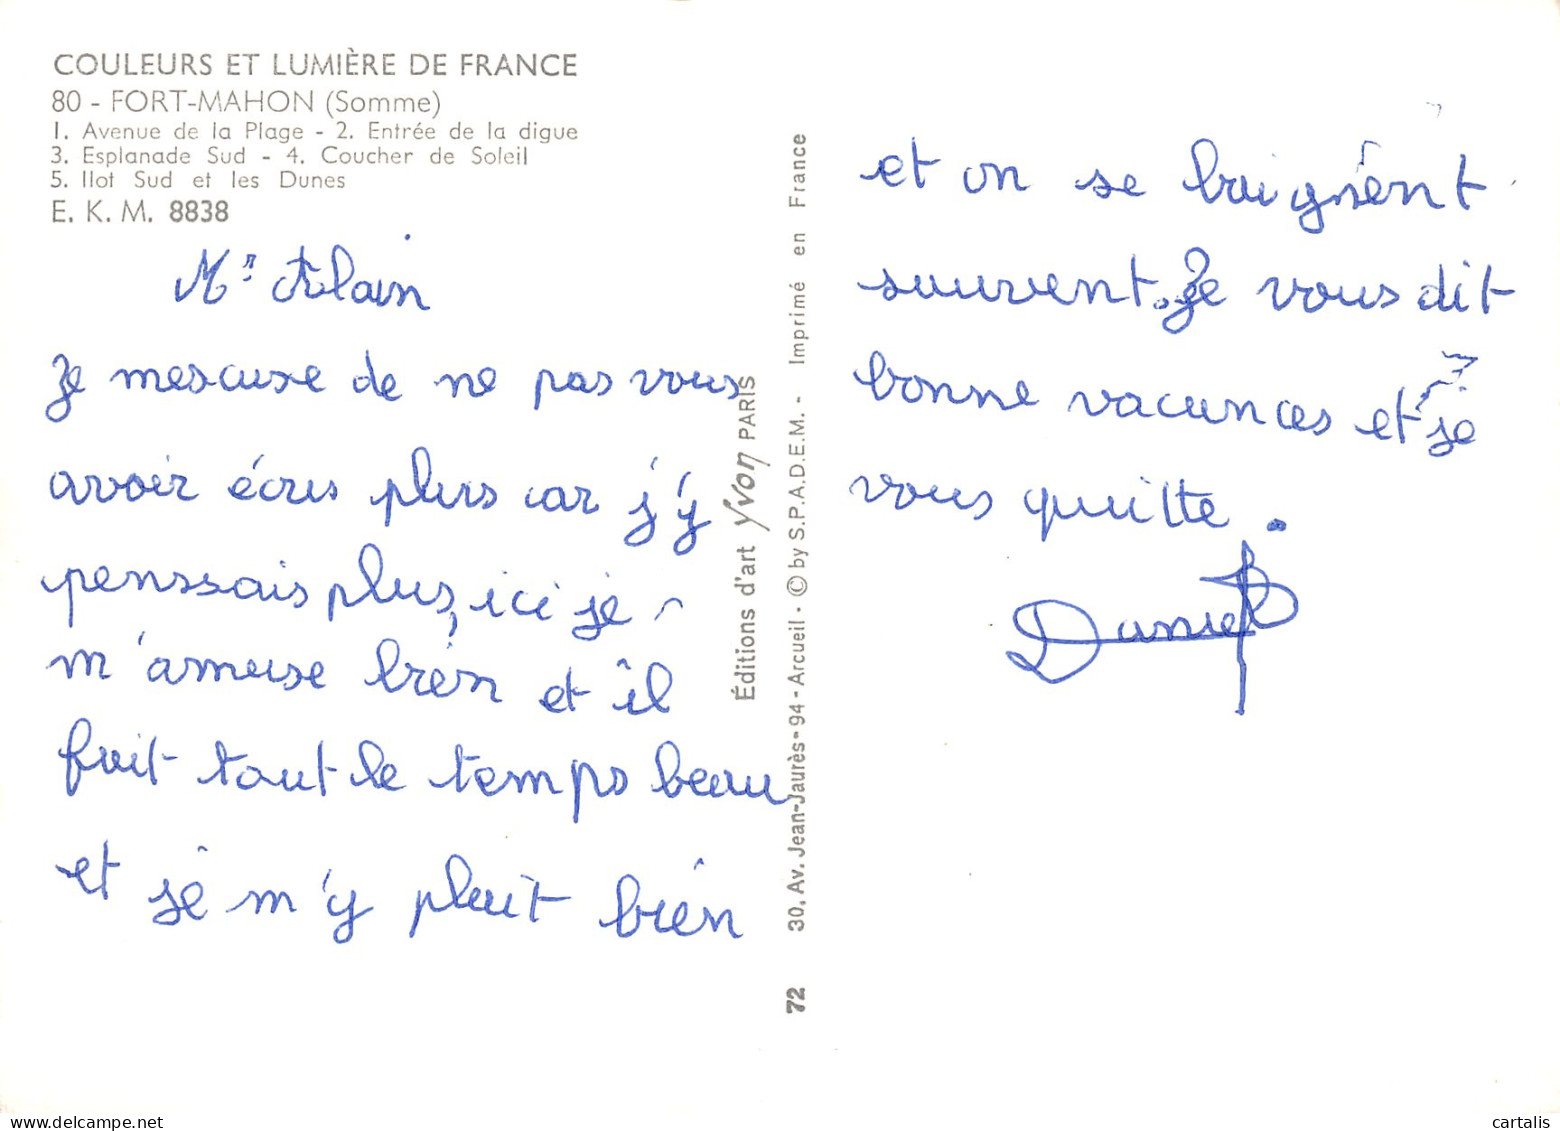 COULEURS ET LUMIÈRE DE FRANCE
80 - FORT-MAHON (Somme)
1. Avenue de la Plage - 2. Entrée de la digue
3. Esplanade Sud - 4. Coucher de Soleil
5. Ilot Sud et les Dunes
E. K. M. 8838
Mr Alain
Je mescuse de ne pas vous
avoir écris plus car j'y
penssais plus, ici je
m'amuse bien et il
fait tout le temps beau
et je m'y plait bien
Éditions d'art Yvon PARIS
30, Av. Jean-Jaurès - 94 - Arcueil - © by S.P.A.D.E.M. - Imprimé en France
72
et on se baignent
souvent. Je vous dit
bonne vacances et je
vous quitte.
Daniel
cartalis